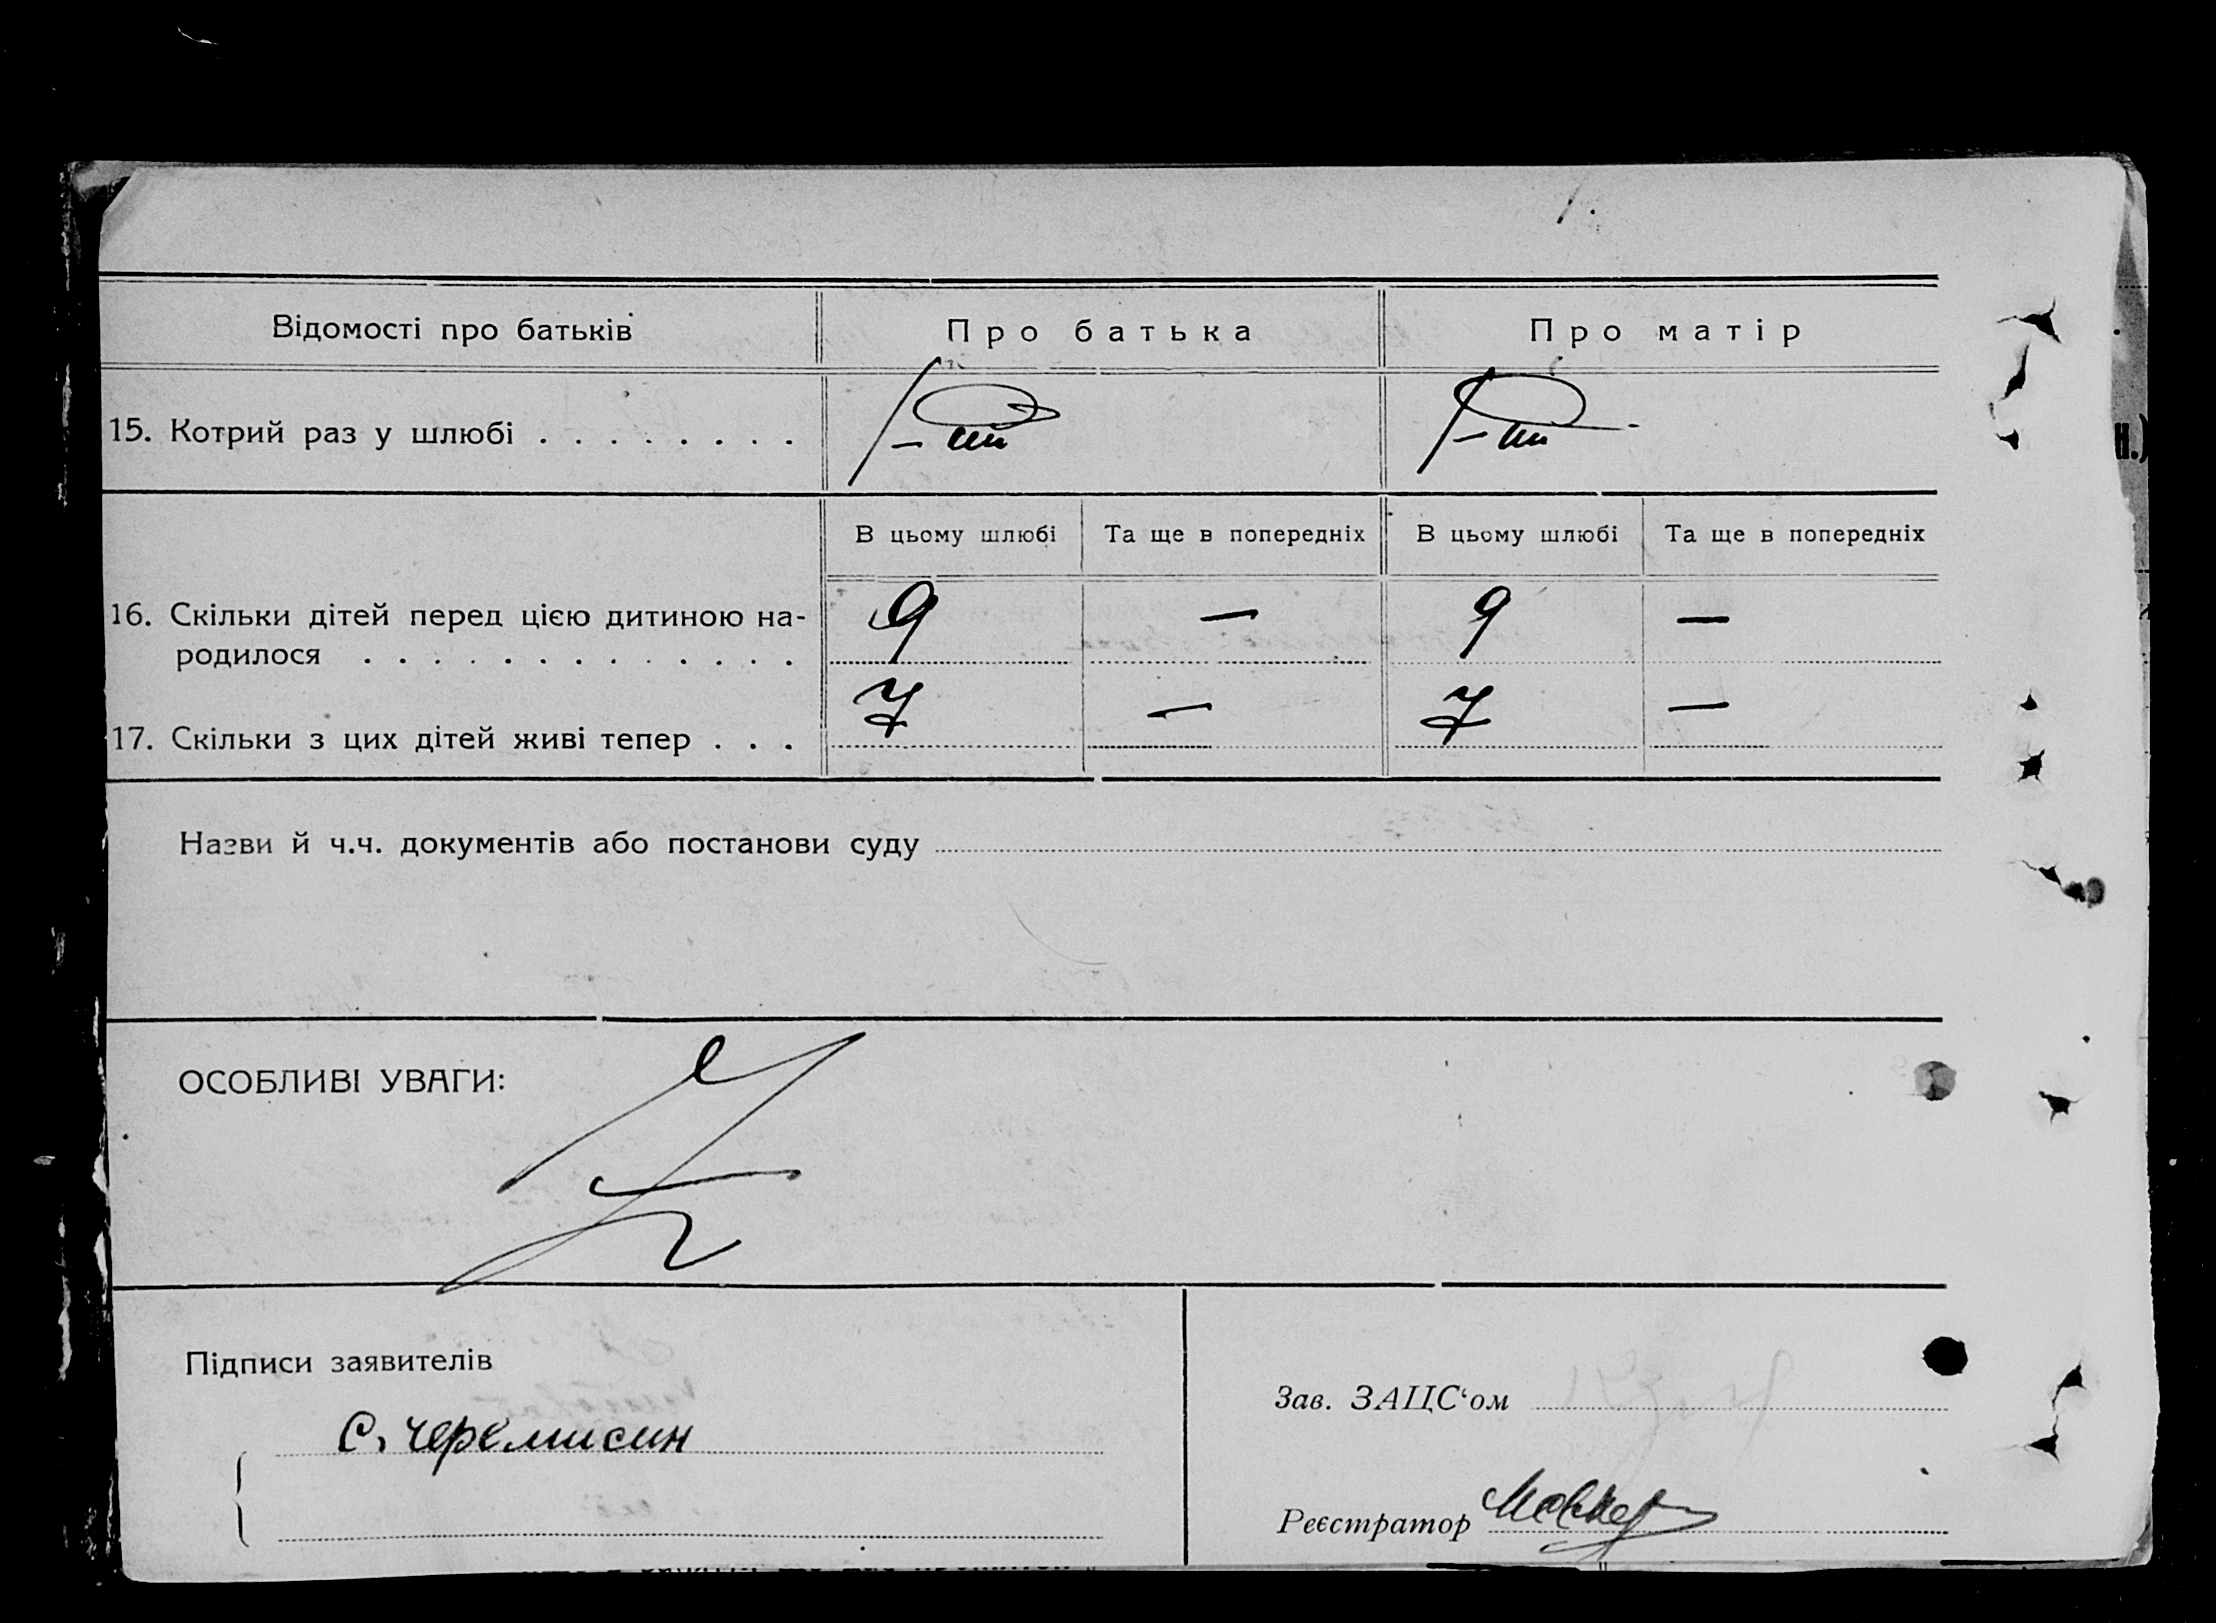 Відомості про батьків Про батька Про матір
15. Котрий раз у шлюбі . . . . . . . . 1-ий 1-ий
В цьому шлюбі Та ще в попередніх В цьому шлюбі Та ще в попередніх
16. Скільки дітей перед цією дитиною на- 9 — 9 —
родилося . . . . . . . . . . . . .
17. Скільки з цих дітей живі тепер . . . 7 — 7 —
Назви й ч.ч. документів або постанови суду
ОСОБЛИВІ УВАГИ:
Підписи заявителів
С. Черемисин
Зав. ЗАЦС‘ом
Реєстратор